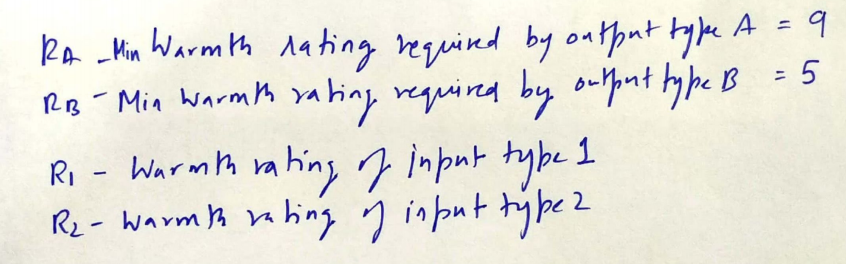 RA - Min Warmth rating required by output type A = 9
RB - Min Warmth rating required by output type B = 5
R1 - Warmth rating of input type 1
R2 - Warmth rating of input type 2